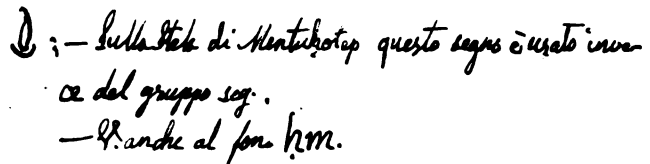 ; – Sulla Stele di Mentuhotep questo segno è usato inve-
ce del gruppo seg.
– V. anche al fon. ḥm.